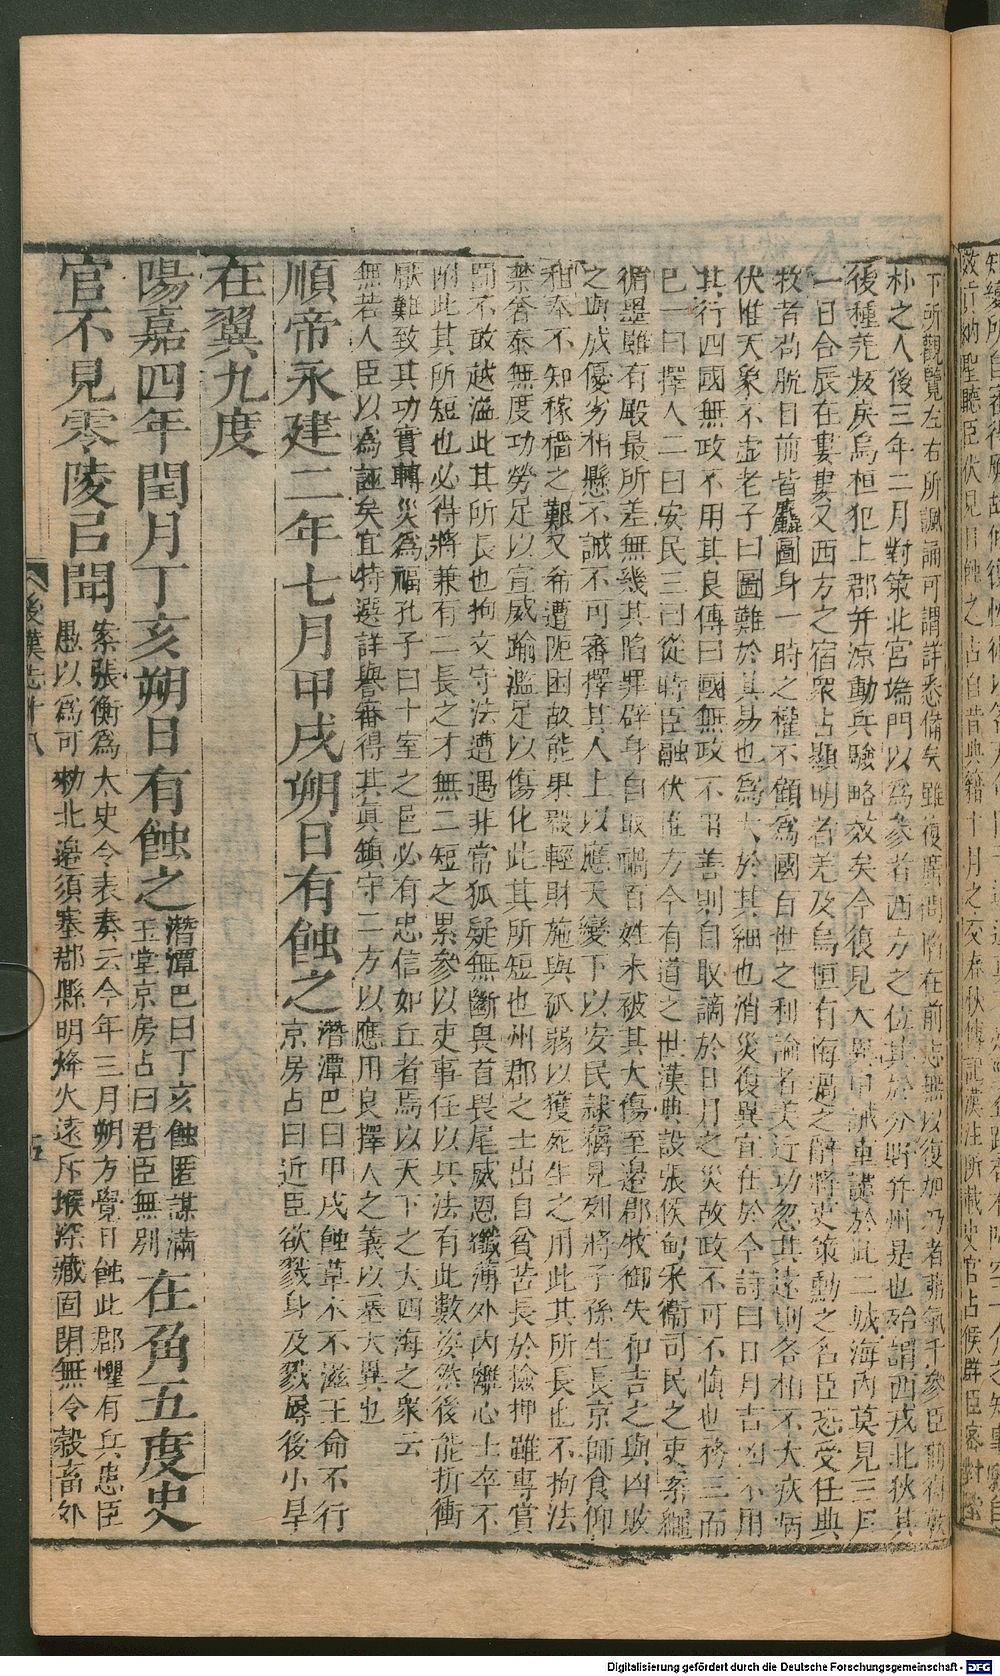 下所觀覽左右所諷誦可謂詳悉備矣雖復廣問陷在前志無以復加乃者茀氣干參臣前得敦
朴之人後三年二月對策北宮端門以為參者西方之位其於分野并州是也殆謂西戎北狄其
後種羌叛戾烏桓犯上郡并凉動兵驗略效矣今復見大異申誡重譴於此二城海內莫見三月
一日合辰在婁婁又西方之宿衆占顯明者羌及烏桓有悔過之辭將吏策勳之名臣恐受任典
牧者苟脫目前皆麤圖身一時之權不顧為國百世之利論者美近功忽其遠則各相不大疢病
伏惟天象不虛老子曰圖難於其易也為大於其細也消災復異宜在於今詩曰日月告凶不用
其行四國無政不用其良傳曰國無政不用善則自取謫於日月之災故政不可不慎也務三而
已一曰擇人二曰安民三曰從時臣融伏惟方今有道之世漢典設張侯甸采衞司民之吏案繩
循墨雖有殿最所差無幾其陷罪辟身自取禍百姓未被其大傷至邊郡牧御失和吉之與凶敗
之與成優劣相懸不誡不可審擇其人上以應天變下以安民隸竊見列將子孫生長京師食仰
租奉不知稼穡之艱又希遭阨困故能果毅輕財施與孤弱以獲死生之用此其所長也不拘法
禁奢泰無度功勞足以宣威踰濫足以傷化此其所短也州郡之士出自貧苦長於撿押雖專賞
罰不敢越溢此其所長也拘文守法遭遇非常狐疑無斷畏首畏尾威恩纖薄外內離心士卒不
附此其所短也必得將兼有二長之才無二短之累參以吏事任以兵法有此數姿然後能折衝
厭難致其功實轉災為福孔子曰十室之邑必有忠信如丘者焉以天下之大四海之衆云
無若人臣以為誣矣宜特選詳譽審得其真鎮守二方以應用良擇人之義以塞大異也
順帝永建二年七月甲戌朔日有蝕之 潛潭巴曰甲戌蝕草木不滋王命不行
京房占曰近臣欲戮身及戮辱後小旱
在翼九度
陽嘉四年閏月丁亥朔日有蝕之 潛潭巴曰丁亥蝕匿謀滿
玉堂京房占曰君臣無別 在角五度史
官不見零陵㠯聞 案張衡為太史令表奏云今年三月朔方覺日蝕此郡懼有兵患臣
愚以為可勑北邊須塞郡縣明烽火遠斥堠深藏固閉無令穀畜外
後漢志十八
五
Digitalisierung gefördert durch die Deutsche Forschungsgemeinschaft - DFG